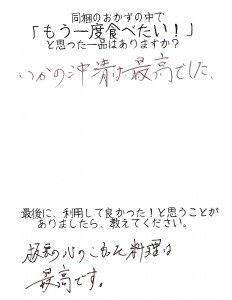 同梱のおかずの中で
「もう一度食べたい!」
と思った一品はありますか?
いかの沖漬は最高でした。
最後に、利用して良かった!と思うことが
ありましたら、教えてください。
心のこもった料理は
最高です。